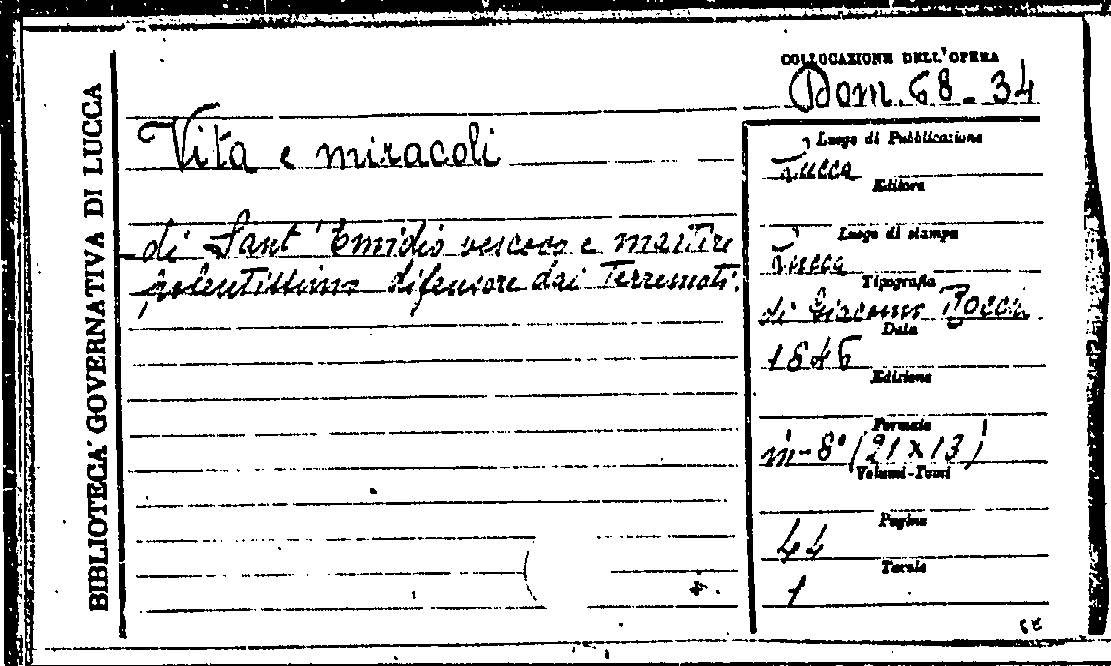 BIBLIOTECA GOVERNATIVA DI LUCCA
COLLOCAZIONE DELL'OPERA
Dom. 68-34
Vita e miracoli
di Sant'Emidio vescovo e martire
potentissimo difensore dai Terremoti.
Luogo di Pubblicazione
Lucca
Editore
Luogo di stampa
Lucca
Tipografia
di Giacomo Rocchi
Data
1846
Edizione
Formato
in-8° (21 x 13)
Volumi-Tomi
Pagine
44
Tavole
1